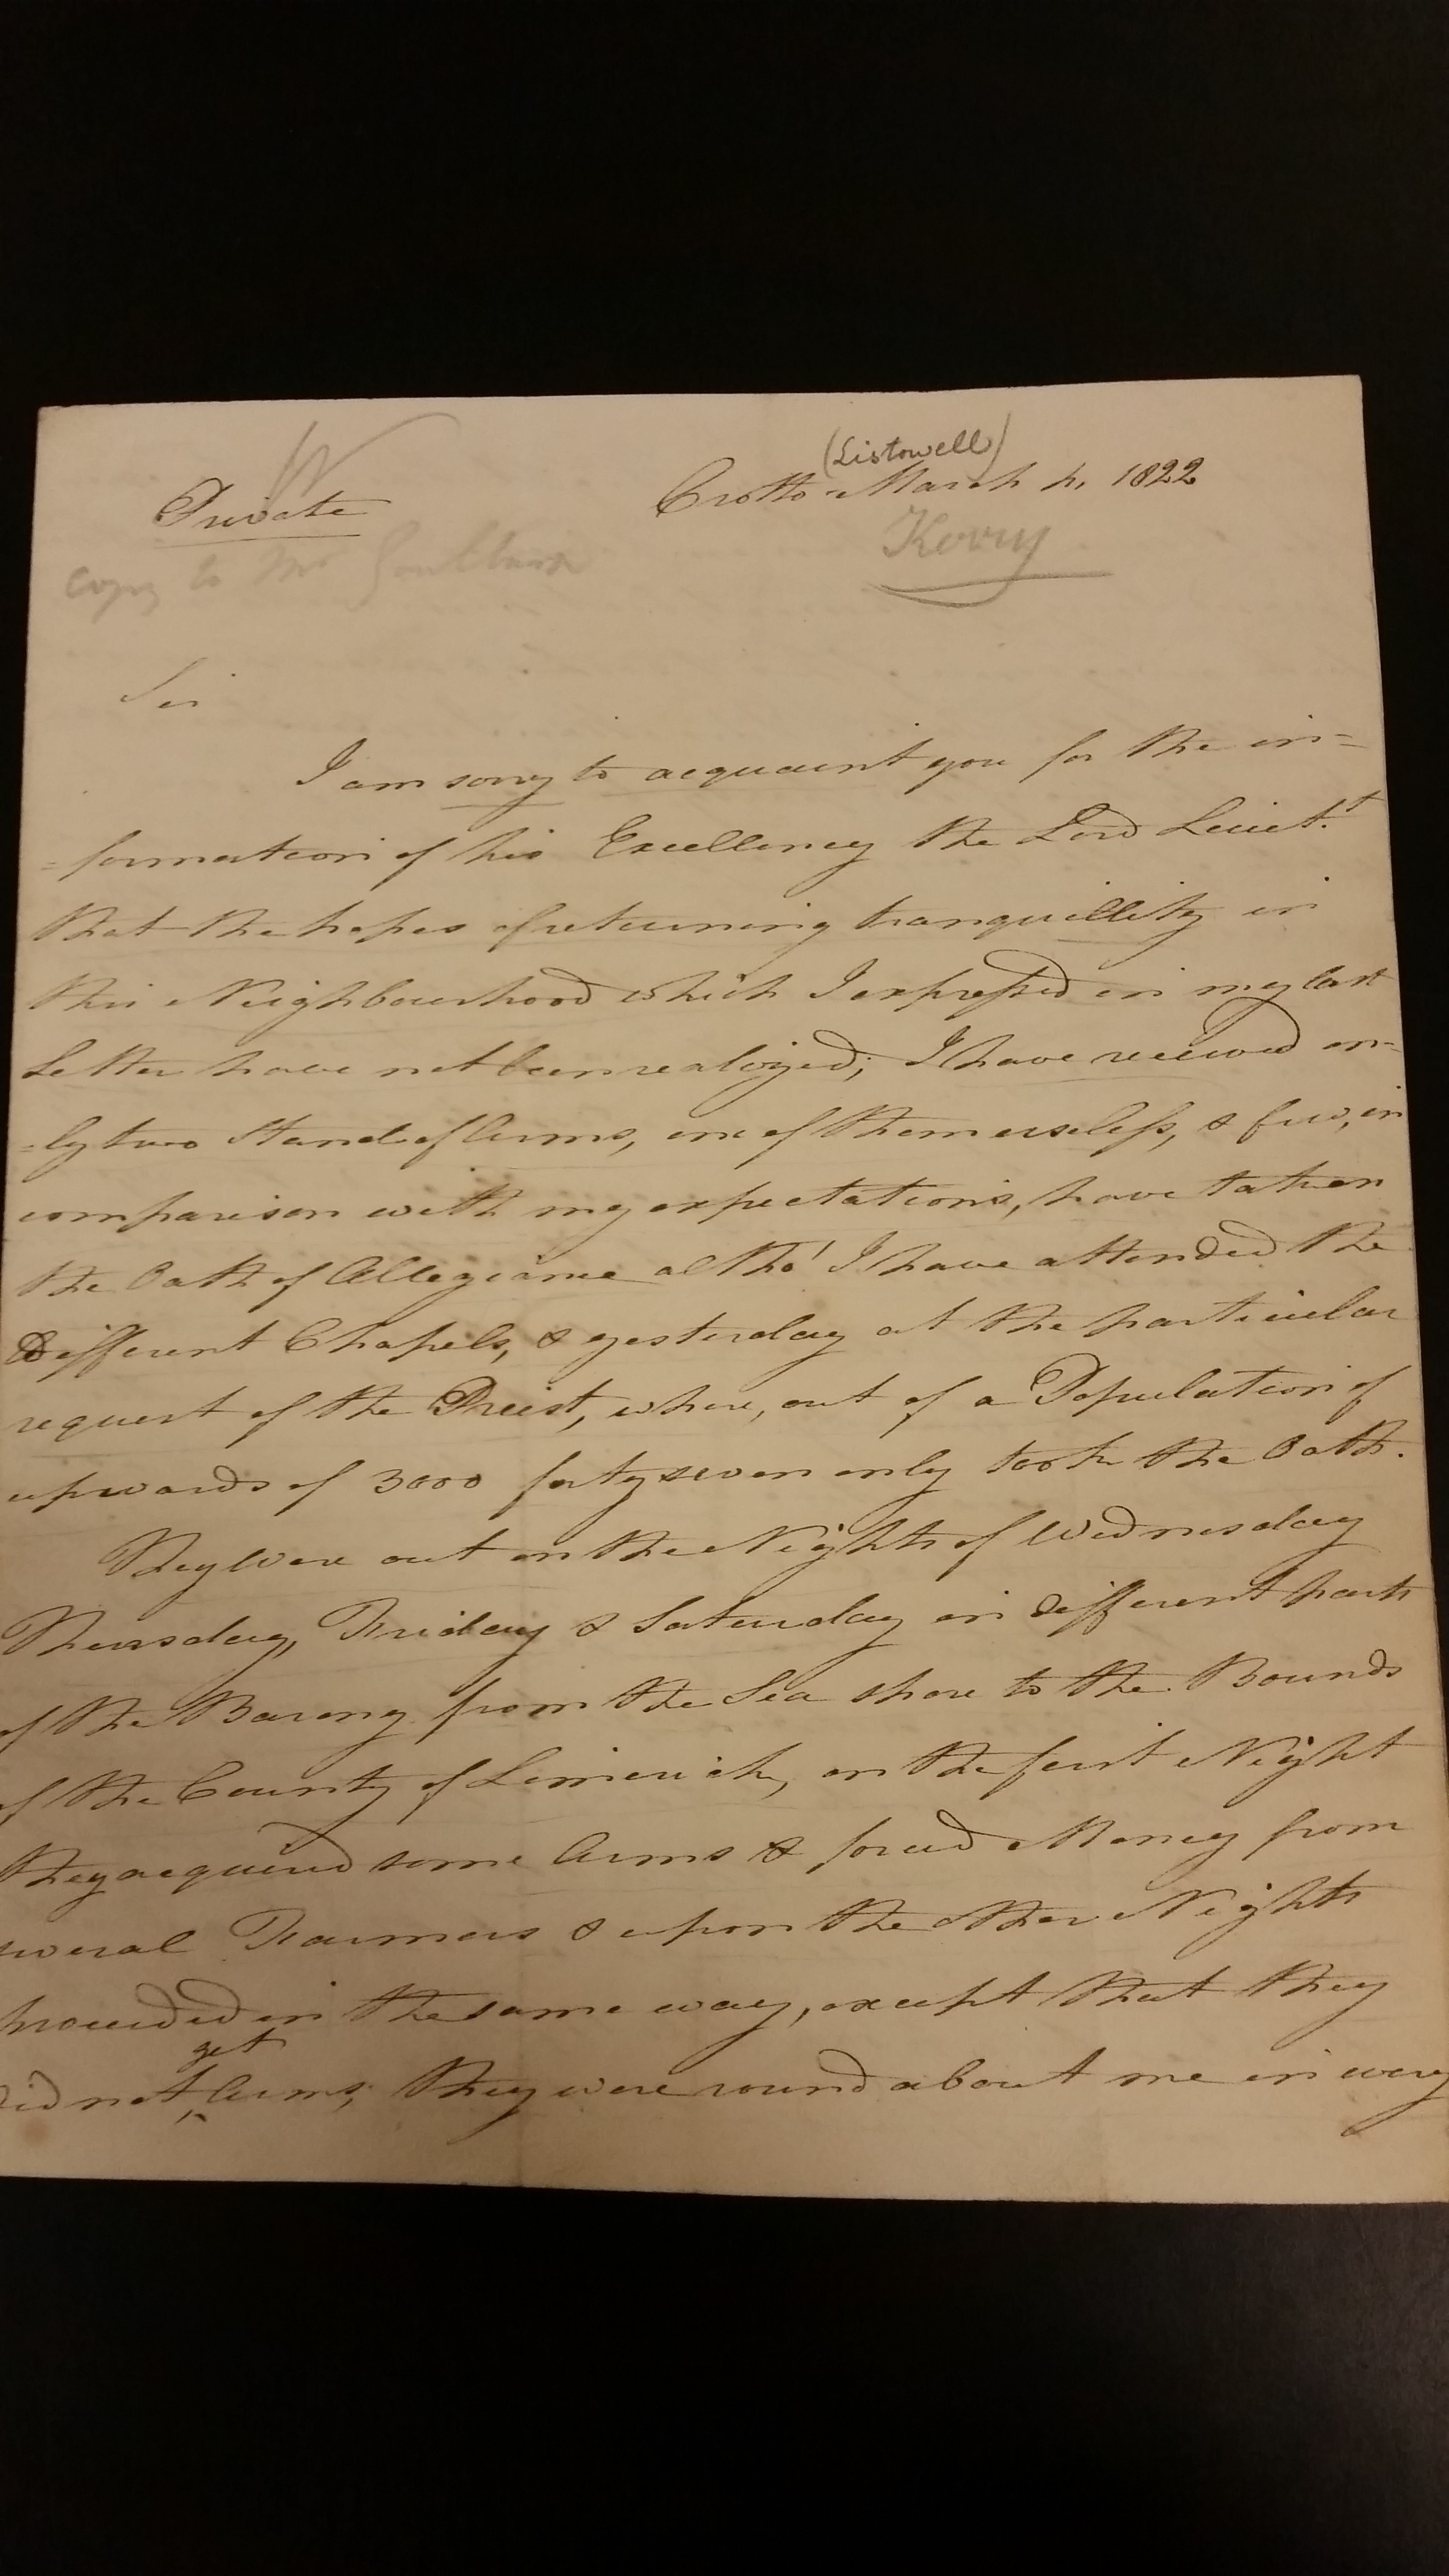 (Listowell)
Private
Crotto March 4, 1822
copy to Mr Goulburn
Kerry
Sir
I am sorry to acquaint you for the in=
=formation of his Excellency the Lord Lieut.t
that the hopes of returning tranquillity in
this Neighbourhood which I expressed in my last
Letter have not been realized; I have received on=
=ly two Stand of Arms, one of them useless, & few, in
comparison with my expectations, have taken
the Oath of Allegiance altho' I have attended the
different Chapels, & yesterday at the particular
request of the Priest, where, out of a Population of
upwards of 3000 forty seven only took the Oath.
They were out on the Nights of Wednesday
Thursday, Friday & Saturday in different parts
of the Barony from the Sea shore to the Bounds
of the County of Limerick, on the first Night
they acquired some Arms & forced Money from
several Farmers & upon the other Nights
proceeded in the same way, except that they
get
did not Arms; they were round about me in every